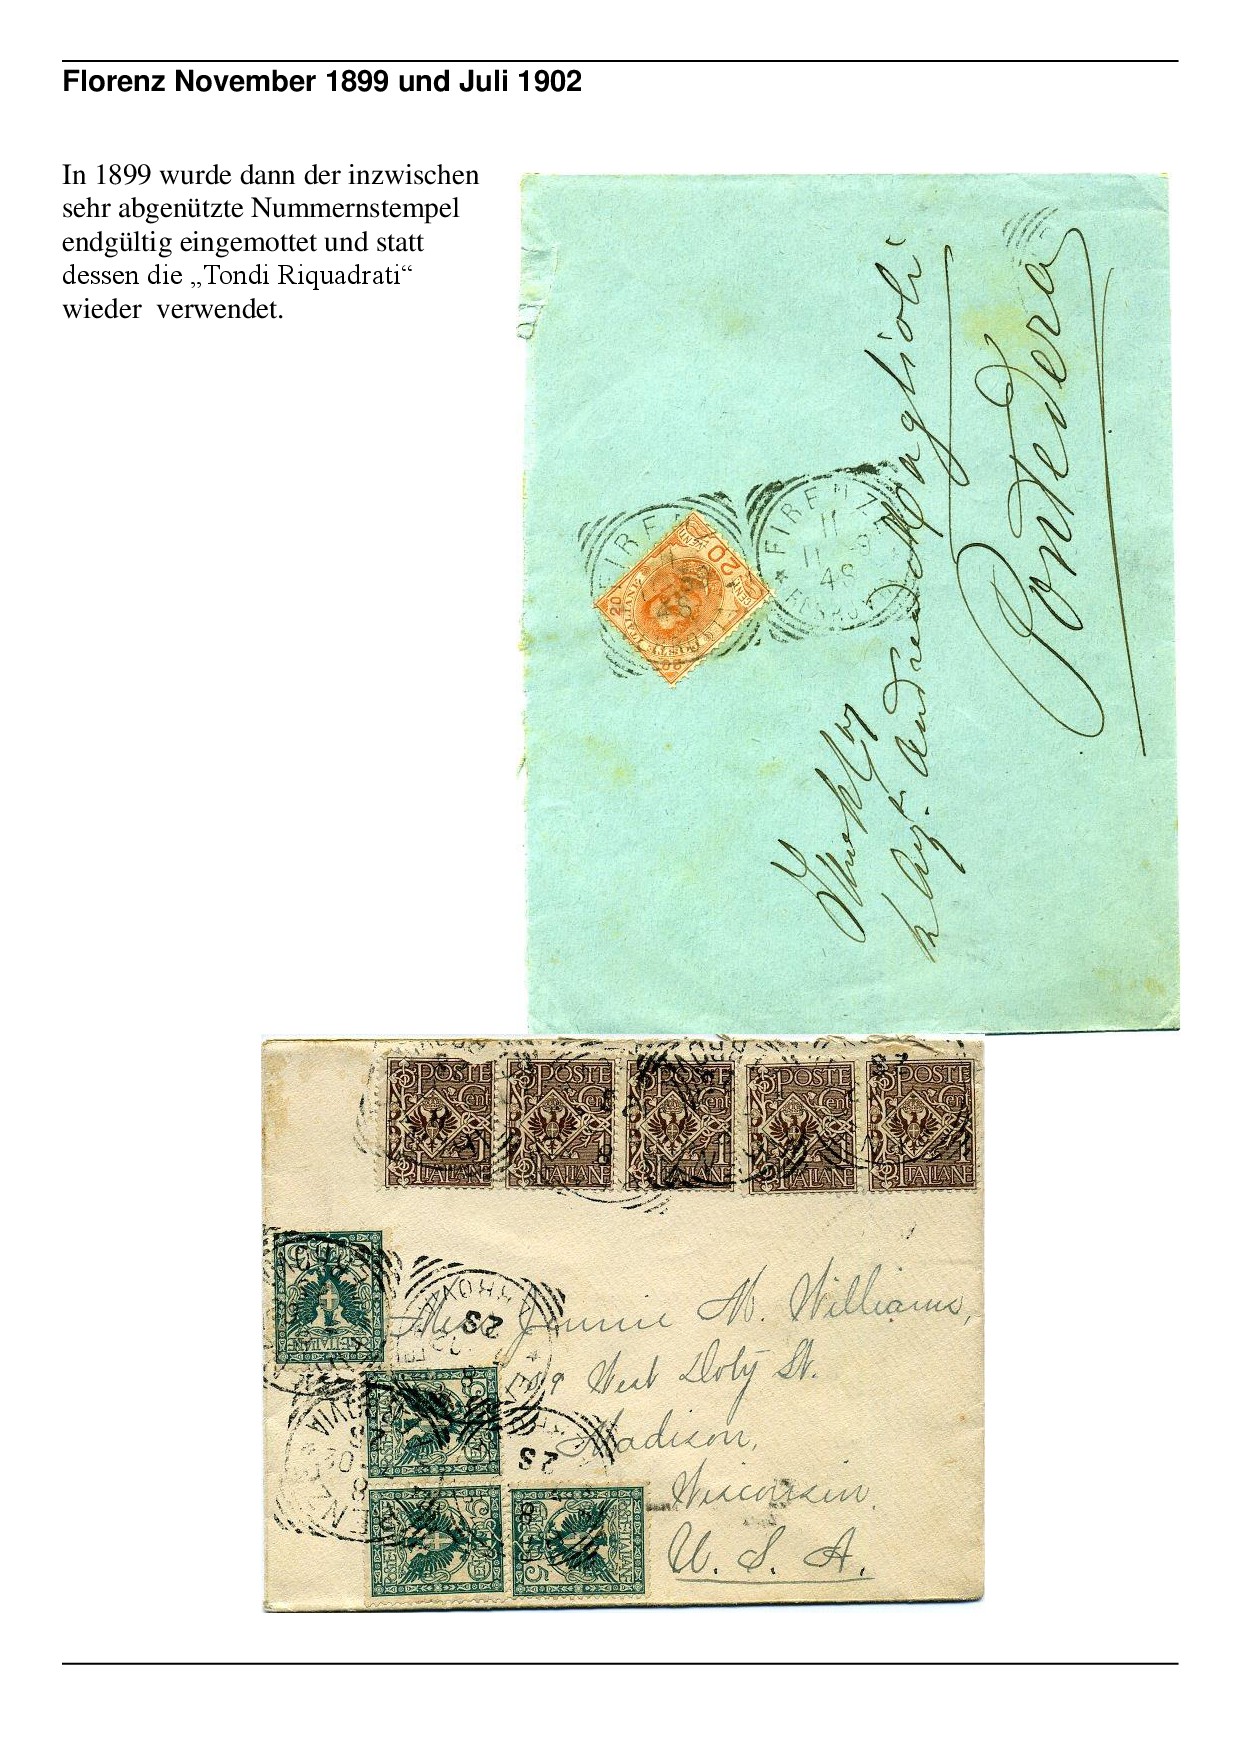 Florenz November 1899 und Juli 1902
In 1899 wurde dann der inzwischen
sehr abgenützte Nummernstempel
endgültig eingemottet und statt
dessen die „Tondi Riquadrati“
wieder verwendet.
Andrea Maglioli
Pontedera
FIRENZE
11
48
20
20
POSTE
Cent 1
ITALIANE
POSTE
Cent 1
ITALIANE
POSTE
Cent 1
ITALIANE
POSTE
Cent 1
ITALIANE
POSTE
Cent 1
ITALIANE
2S
2S
Miss Jennie M. Williams,
West Doty St.
Madison,
Wisconsin.
U. S. A.